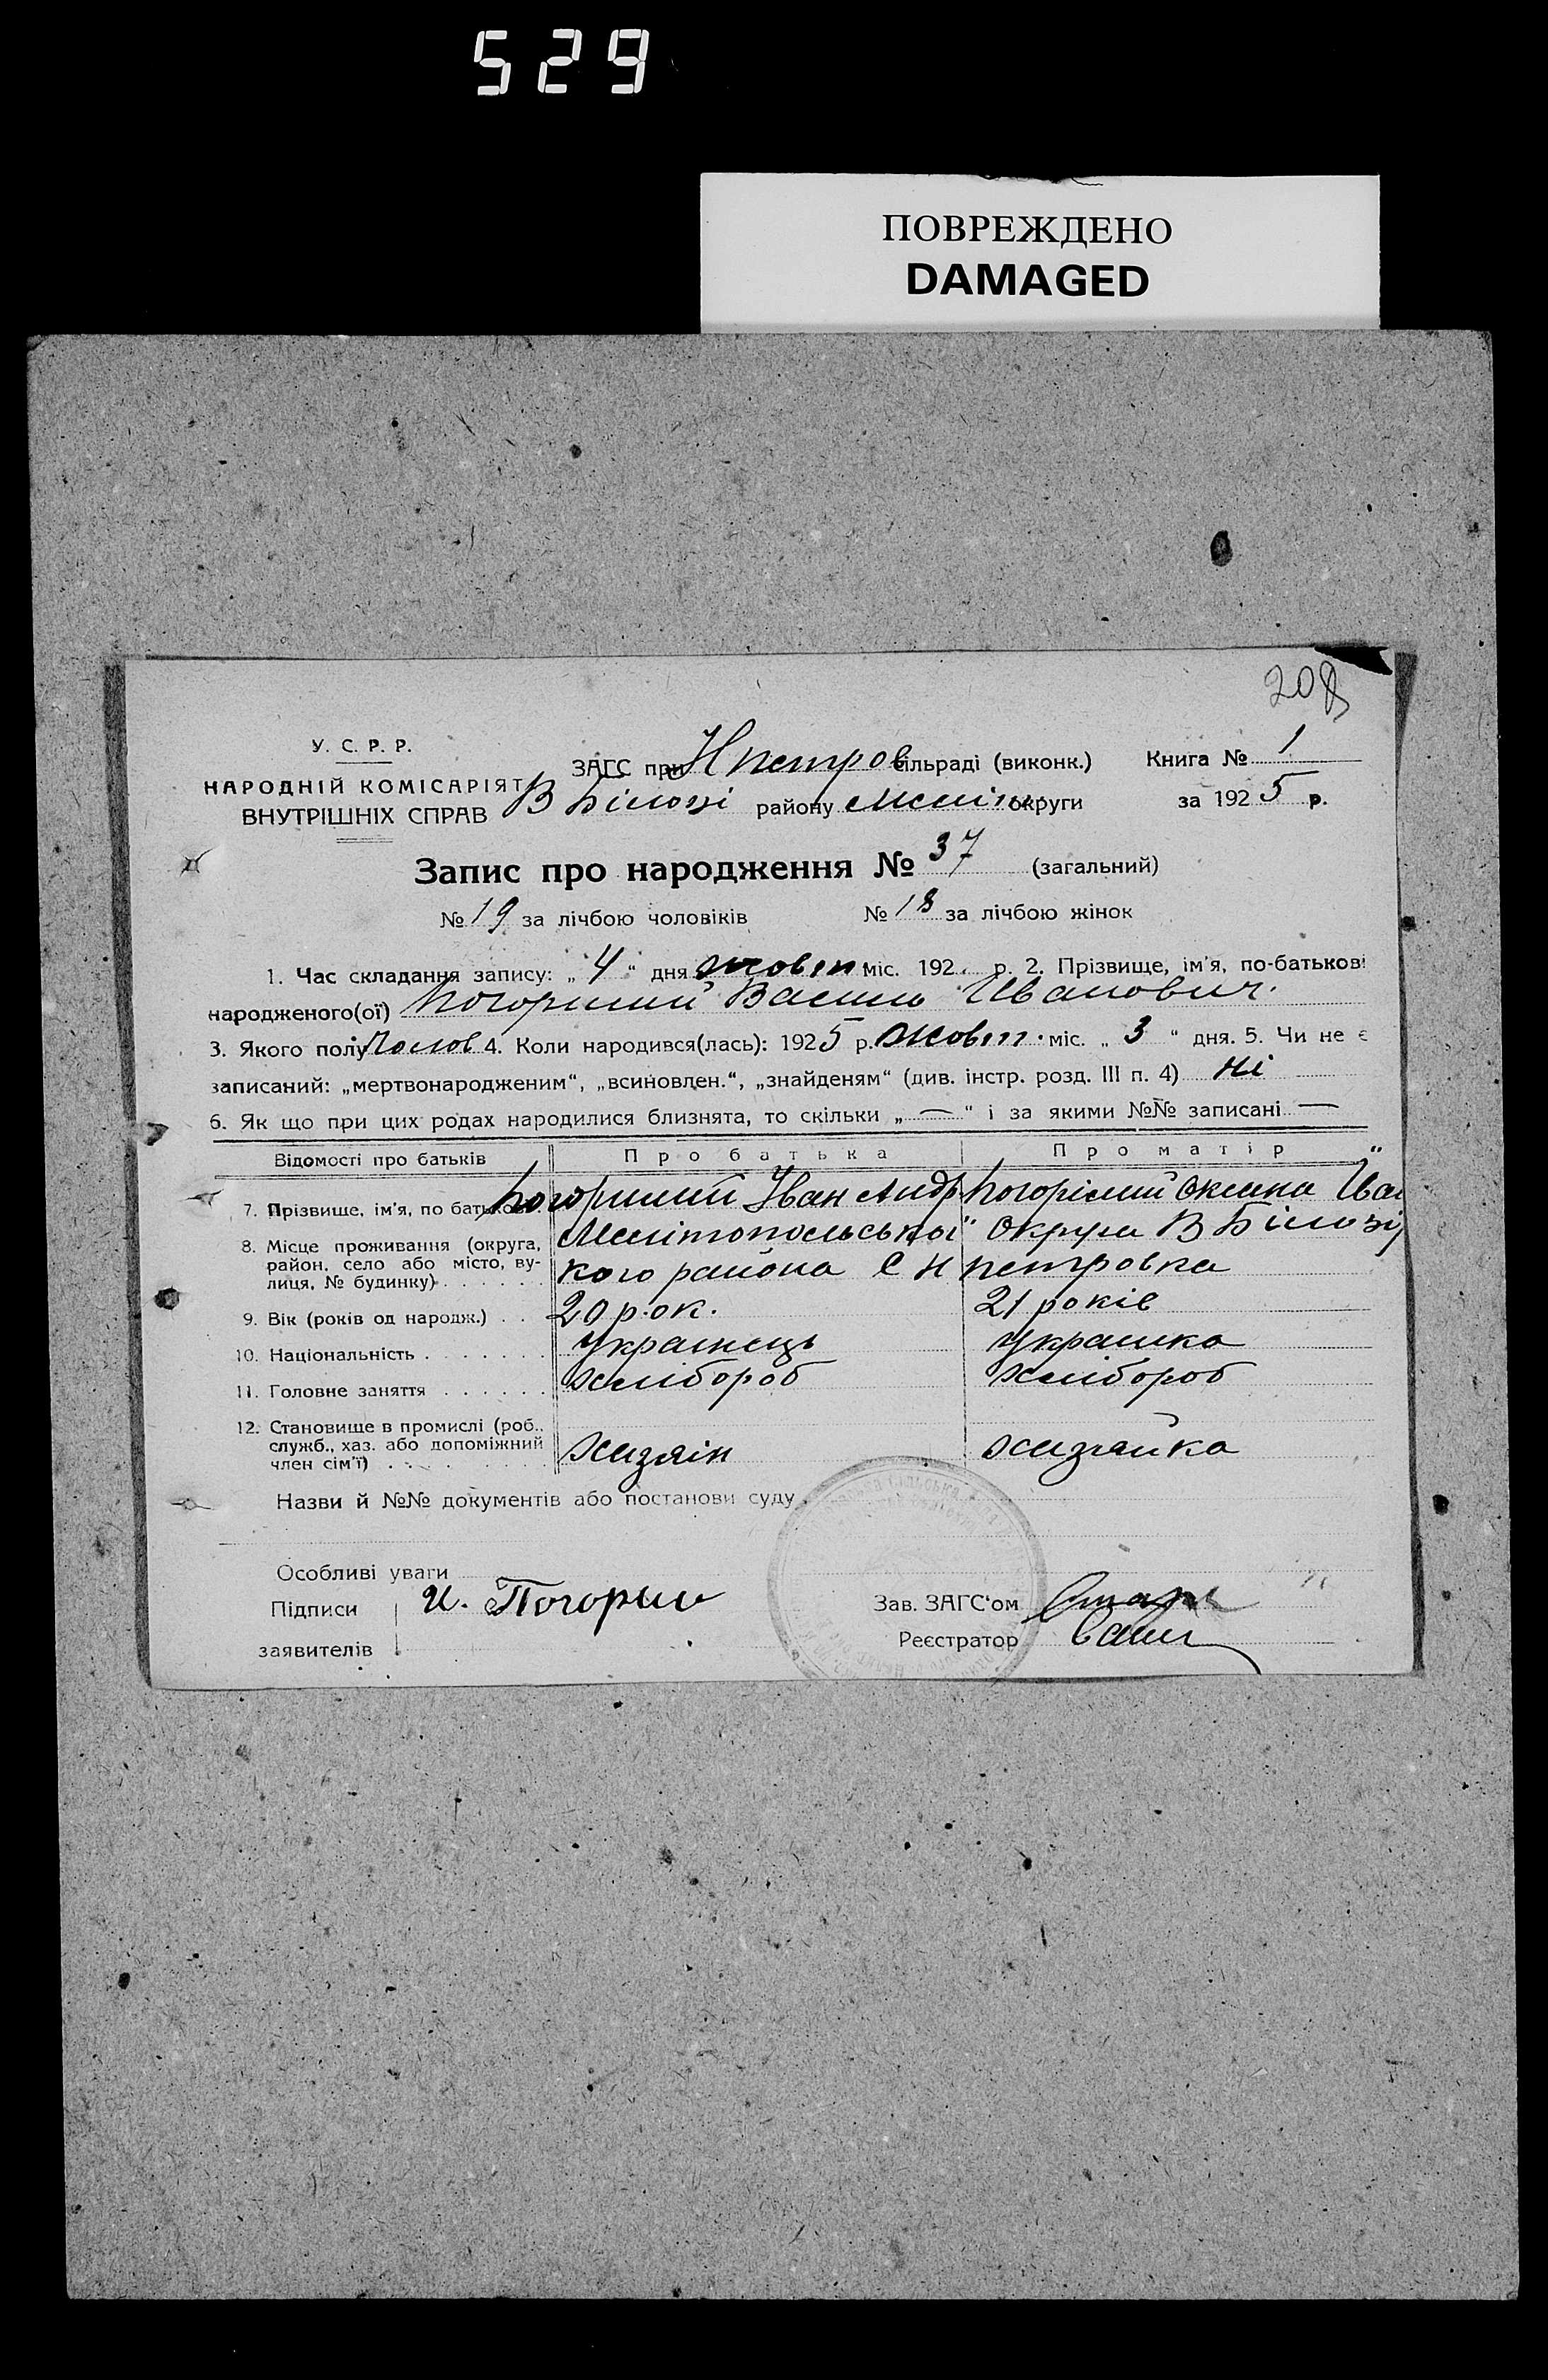 529
ПОВРЕЖДЕНО
DAMAGED
208
У. С. Р. Р.
НАРОДНІЙ КОМІСАРІЯТ
ВНУТРІШНІХ СПРАВ
ЗАГС при Нпетров сільраді (виконк.) Книга № 1
В Білозі району Меліт округи за 1925 р.
Запис про народження № 37 (загальний)
№ 19 за лічбою чоловіків № 18 за лічбою жінок
1. Час складання запису: „4“ дня жовтн міс. 192 р. 2. Прізвище, ім'я, по-батькові
народженого(ої) Погорилий Василь Иванович.
3. Якого полу Чолов 4. Коли народився(лась): 1925 р. Жовт. міс. „3“ дня. 5. Чи не є
записаний: „мертвонародженим“, „всиновлен.“, „знайденям“ (див. інстр. розд. III п. 4) Ні
6. Як що при цих родах народилися близнята, то скільки „—“ і за якими №№ записані —
Відомості про батьків Про батька Про матір
7. Прізвище, ім'я, по батькові Погорилий Іван Андр Погорілий Оксана Іван
8. Місце проживання (округа, Мелітопольської Округи В Білозір
район, село або місто, ву-
лиця, № будинку) кого района С Н петровка
9. Вік (років од народж.) 20 рок. 21 років
10. Національність Украінець Украінка
11. Головне заняття Хлібороб Хлібороб
12. Становище в промислі (роб.,
служб., хаз. або допоміжний
член сім'ї) Хазяін Хазяйка
Назви й №№ документів або постанови суду
Особливі уваги
Підписи И. Погорил Зав. ЗАГС'ом
заявителів Реєстратор